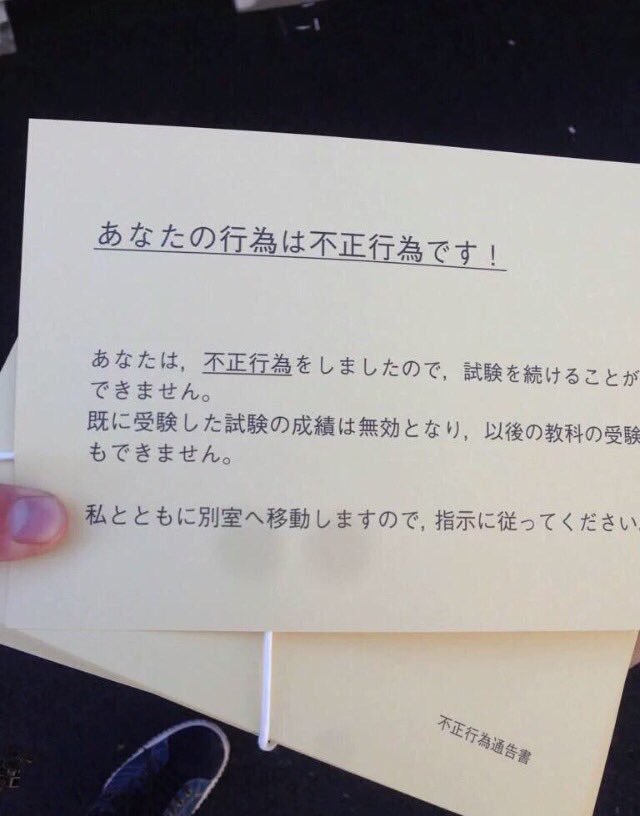 あなたの行為は不正行為です！
あなたは，不正行為をしましたので，試験を続けることが
できません。
既に受験した試験の成績は無効となり，以後の教科の受験
もできません。
私とともに別室へ移動しますので，指示に従ってください。
不正行為通告書